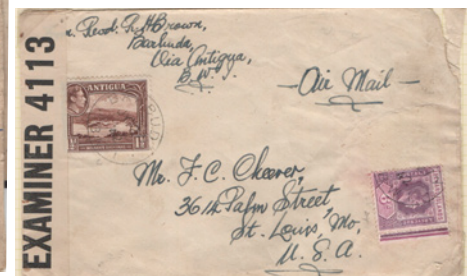 EXAMINER 4113
Revd. P. H. Brown,
Barbuda,
Via Antigua,
B.W.I.
- Air Mail -
ANTIGUA
Mr. F. C. Cheever,
3614 Palm Street,
St. Louis, Mo,
U. S. A.